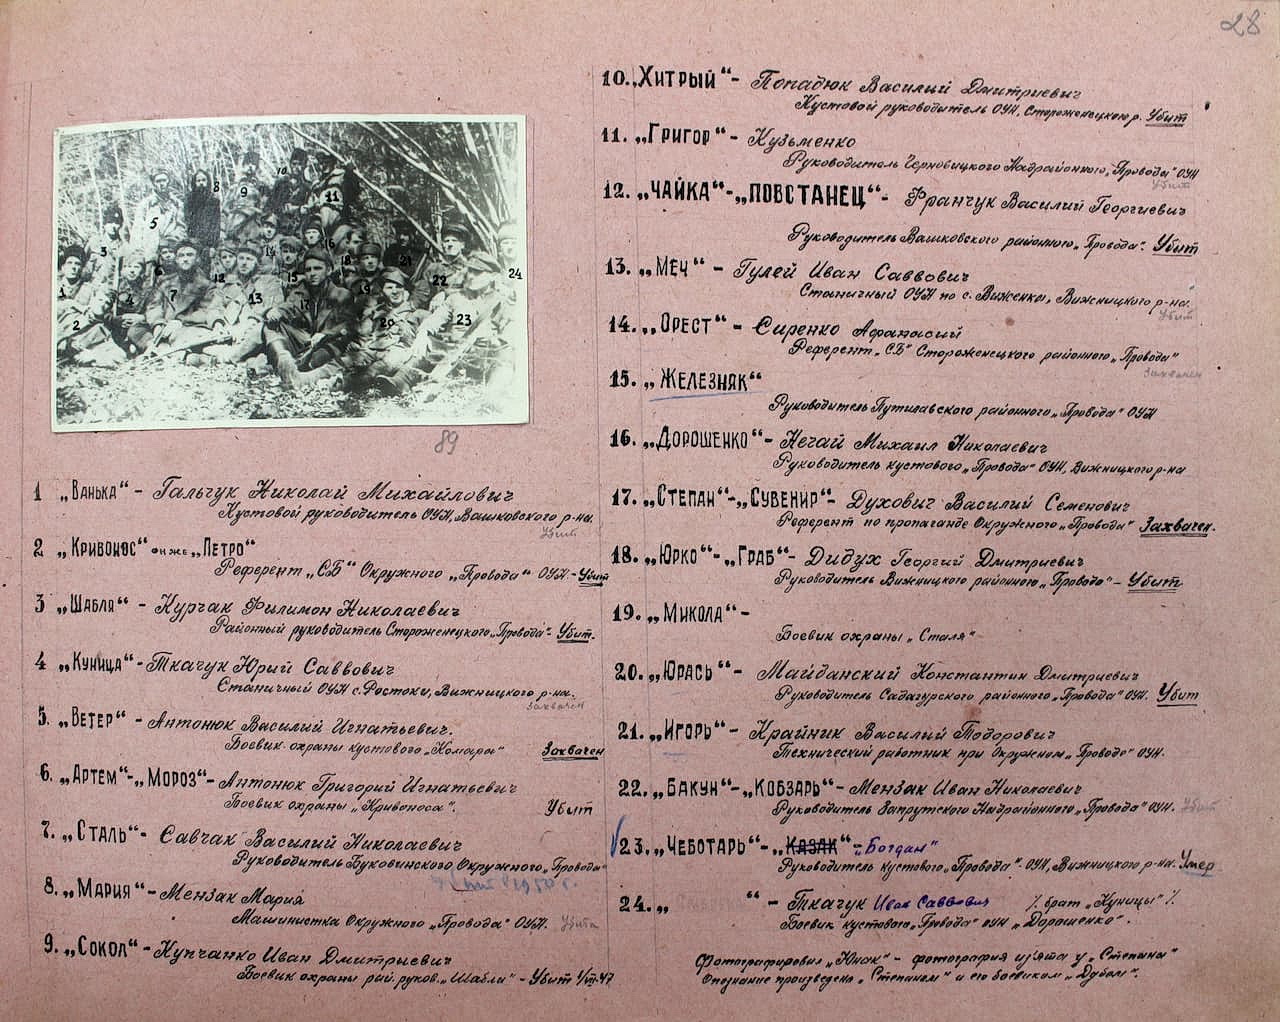 28
89
1 „Ванька“ - Гальчук Николай Михайлович
Кустовой руководитель ОУН, Вашковского р-на.
Убит
2 „Кривонос“ он же „Петро“
Референт „СБ“ Окружного „Провода“ ОУН - Убит
3 „Шабля“ - Курчак Филимон Николаевич
Районный руководитель Стороженецкого „Провода“- Убит.
4 „Куница“ - Ткачук Юрий Саввович
Станичный ОУН с. Ростоки, Вижницкого р-на.
Захвачен
5. „Ветер“ - Антонюк Василий Игнатьевич.
Боевик охраны кустового „Комара“ Захвачен
6. „Артем“-„Мороз“- Антонюк Григорий Игнатьевич
Боевик охраны „Кривоноса“. Убит
7. „Сталь“- Савчак Василий Николаевич
Руководитель Буковинского Окружного „Провода“
1950 г.
8. „Мария“ - Мензак Мария
Машинистка Окружного „Провода“ ОУН. Убита
9. „Сокол“ - Купчанко Иван Дмитриевич
Боевик охраны рай. руков. „Шабли“ - Убит 1/VIII-47
10. „Хитрый“ - Попадюк Василий Дмитриевич
Кустовой руководитель ОУН, Стороженецкого р. Убит
11. „Григор“ - Кузьменко
Руководитель Черновицкого Надрайонного „Провода“ ОУН
Убит
12. „Чайка“-„Повстанец“- Франчук Василий Георгиевич
Руководитель Вашковского районного „Провода“. Убит
13. „Меч“ - Гулей Иван Саввович
Станичный ОУН по с. Виженка, Вижницкого р-на.
Убит
14. „Орест“ - Сиренко Афанасий
Референт „СБ“ Стороженецкого районного „Провода“
Захвачен
15. „Железняк“
Руководитель Путилавского районного „Провода“ ОУН
16. „Дорошенко“ - Нечай Михаил Николаевич
Руководитель кустового „Провода“ ОУН, Вижницкого р-на
17. „Степан“-„Сувенир“- Духович Василий Семенович
Референт по пропаганде Окружного „Провода“ Захвачен.
18. „Юрко“-„Граб“- Дидух Георгий Дмитриевич
Руководитель Вижницкого районного „Провода“ - Убит
19. „Микола“ -
Боевик охраны „Сталя“
20. „Юрась“ - Майданский Константин Дмитриевич
Руководитель Садагурского районного „Провода“ ОУН. Убит
21. „Игорь“ - Крайник Василий Тодорович
Технический работник при Окружном „Проводе“ ОУН.
22. „Бакун“-„Кобзарь“- Мензак Иван Николаевич
Руководитель Запрутского Надрайонного „Провода“ ОУН. Убит
23. „Чеботарь“-„Казак“-„Богдан“
Руководитель кустового „Провода“. ОУН, Вижницкого р-на. Умер
24. „ “ - Ткачук Иван Саввович /. брат „Куницы“ /.
Боевик кустового „Провода“ ОУН „Дорошенко“.
Фотографировал „Юнак“ - фотография из'ята у „Степана“
Опознание произведено „Степаном“ и его боевиком „Дубом“.
1
2
3
4
5
6
7
8
9
10
11
12
13
14
15
16
17
18
19
20
21
22
23
24